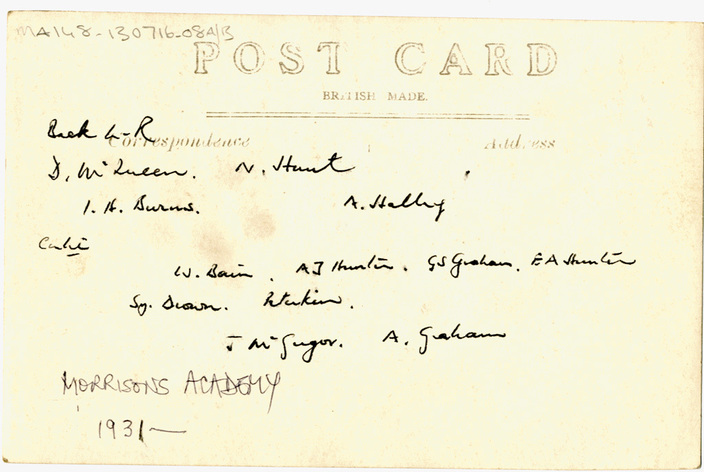 MA148-130716-08A/B
POST CARD
BRITISH MADE.
Back L-R
Correspondence Address
D. McQueen. N. Hunt
I. H. Burns. A. Halley
W. Bain. A J Hunter. G S Graham. E A Hunter
Brown.
J McGregor. A. Graham
MORRISONS ACADEMY
1931—